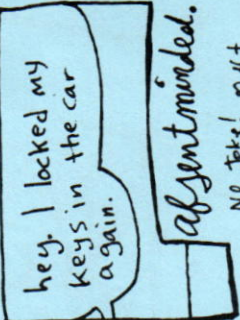 hey. I locked my
keys in the car
again.
absentminded.
No joke!